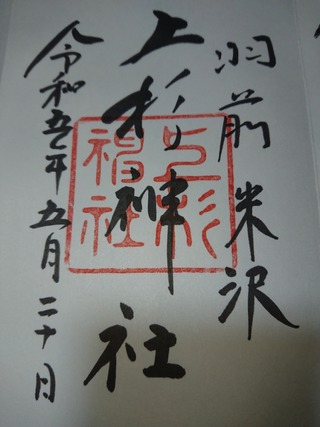 羽前 米沢
上杉神社
上杉神社
令和五年五月二十日